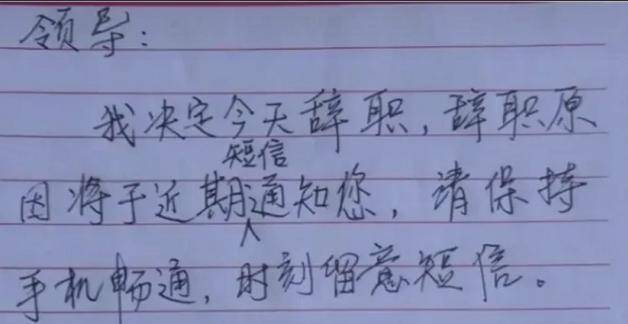 领导：
我决定今天辞职，辞职原
因将于近期短信通知您，请保持
手机畅通，时刻留意短信。